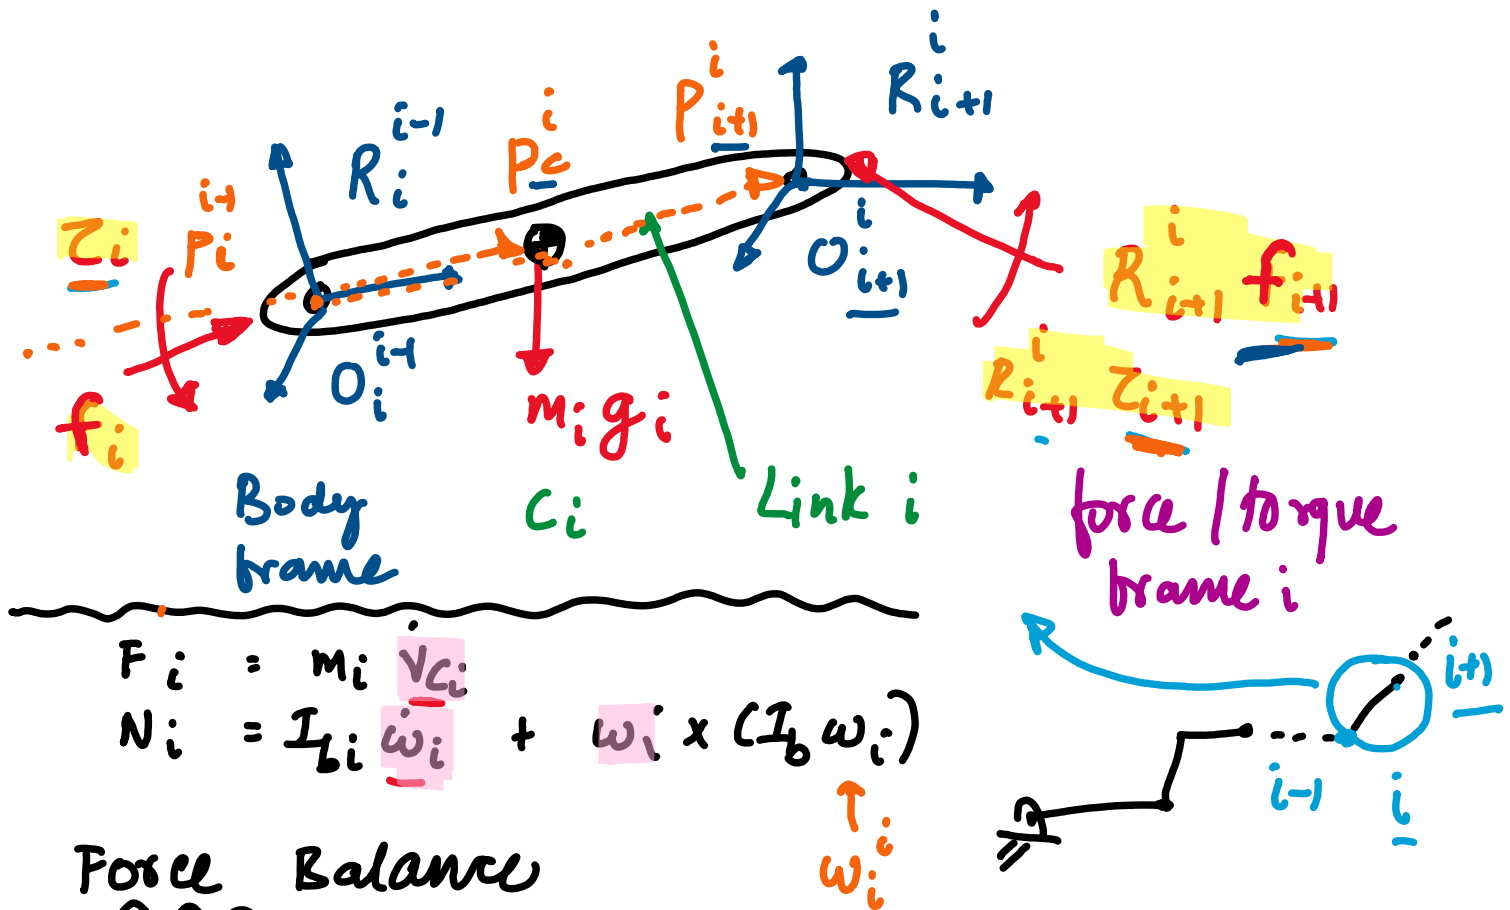 R_i^{i-1}
p_c^i
p_{i+1}^i
R_{i+1}^i
τ_i
p_i^{i-1}
O_{i+1}^i
R_{i+1}^i f_{i+1}
O_i^{i-1}
m_i g_i
R_{i+1}^i τ_{i+1}
f_i
Body
frame
C_i
Link i
force / torque
frame i
F_i = m_i v̇_{C_i}
N_i = I_{bi} ω̇_i + ω_i × (I_b ω_i)
i+1
i-1
i
ω_i^i
Force Balance